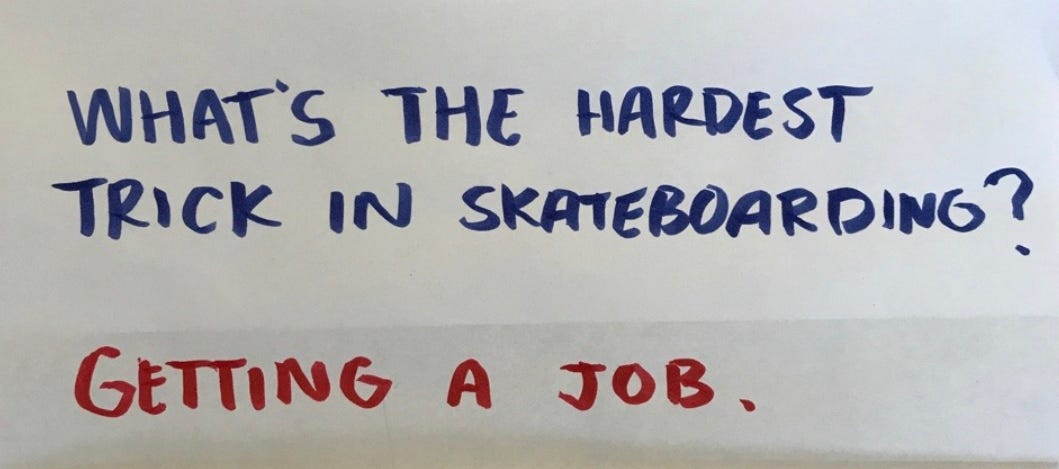 WHAT'S THE HARDEST
TRICK IN SKATEBOARDING?
GETTING A JOB.